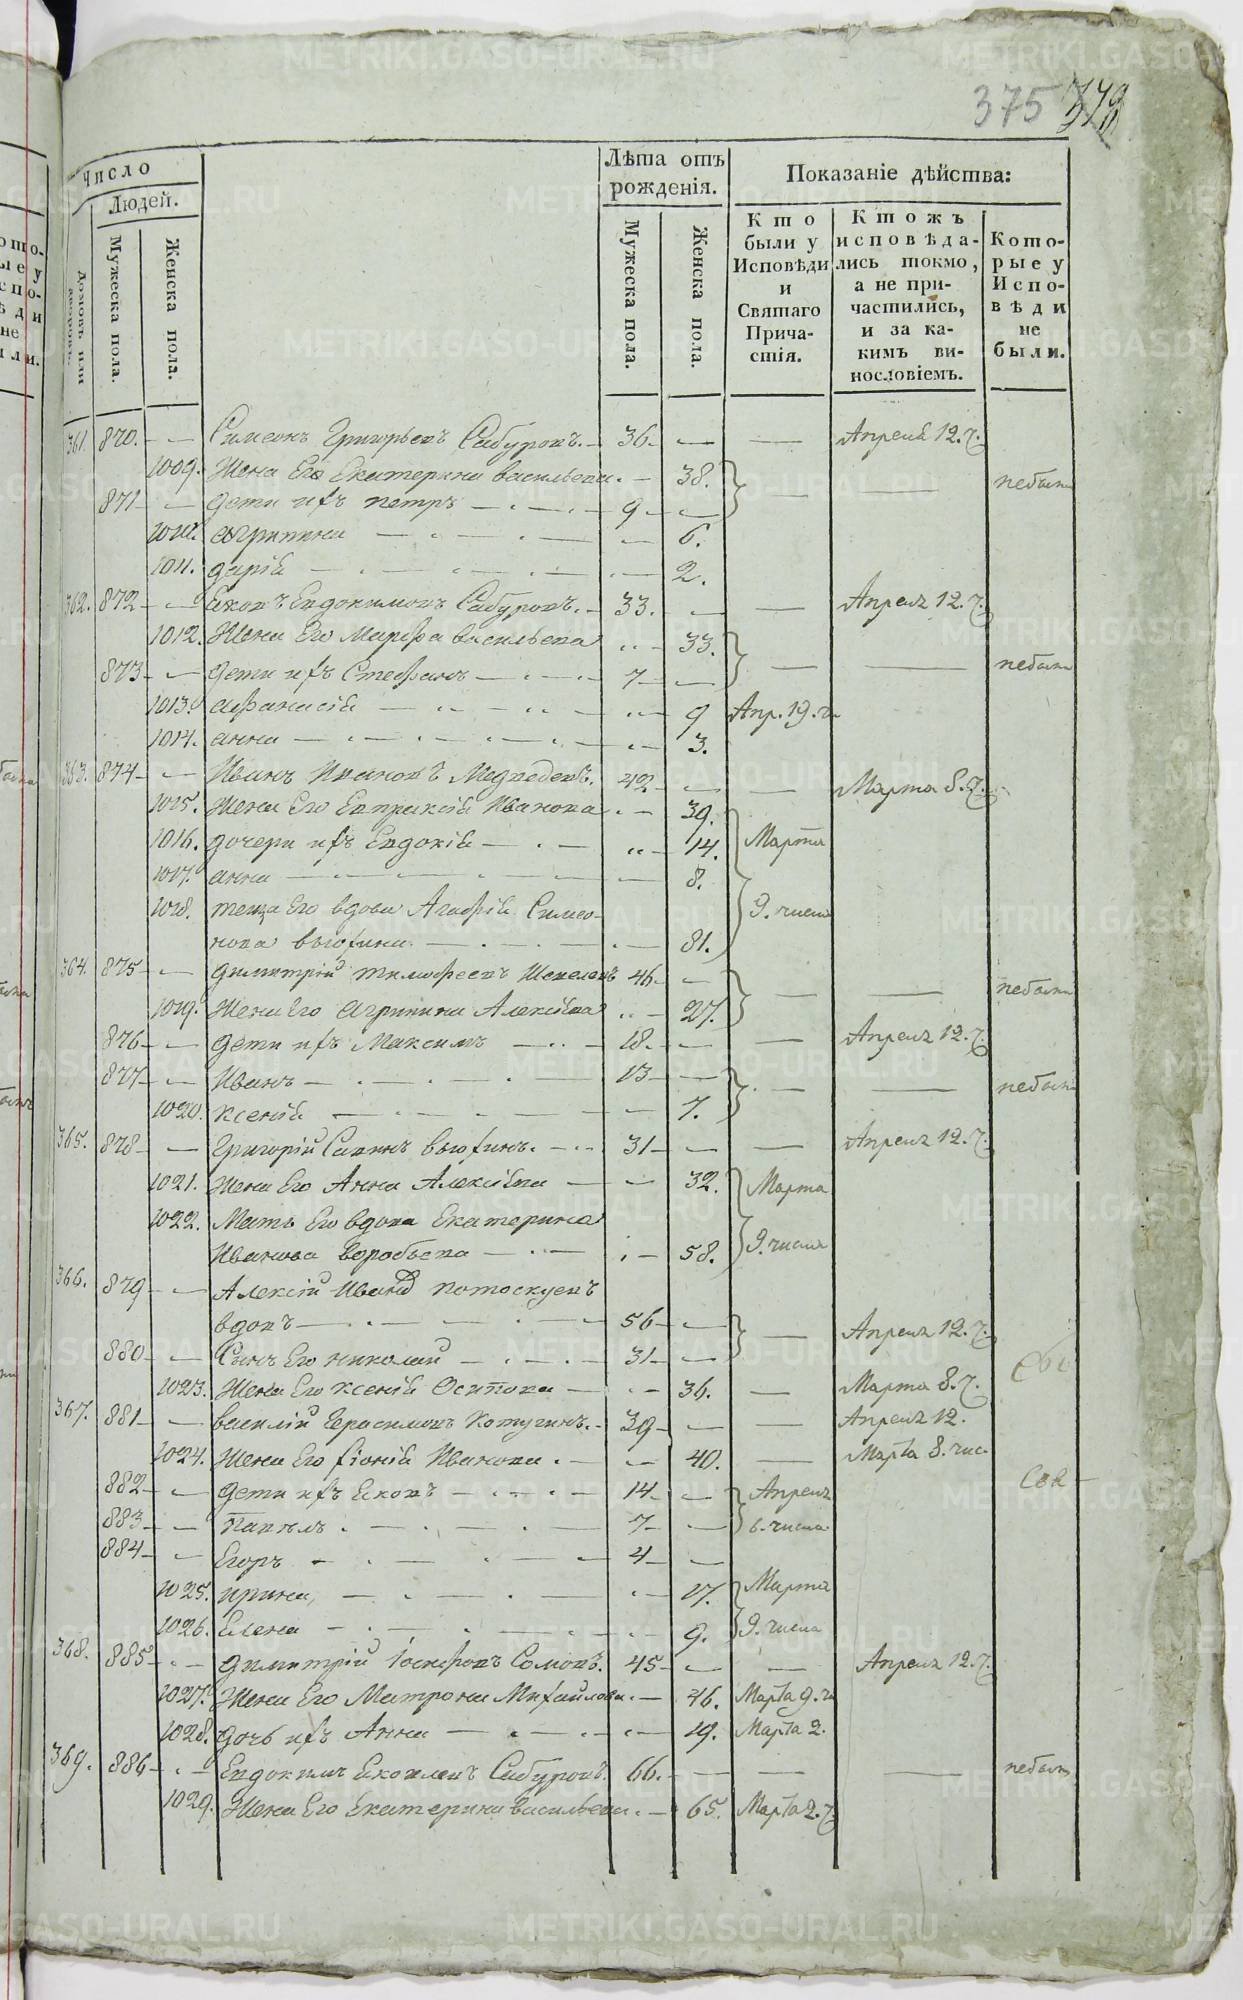 375
Число
Людей.
Домовъ или дворовъ.
Мужеска пола.
Женска пола.
Лѣта отъ рожденія.
Мужеска пола.
Женска пола.
Показаніе дѣйства:
Кто были у Исповѣди и Святаго Причастія.
Ктожъ исповѣдались токмо, а не причастились, и за какимъ винословіемъ.
Которые у Исповѣди не были.
361. 870. — Симеонъ Григорьевъ Сабуровъ. 36. — — Апреля 12. ч.
1009. Жена Его Екатерина васильева. — 38. — — небыли
871 — дети ихъ петръ — 9 —
1010. агрипина — 6.
1011. дарія — 2.
362. 872 — Ековъ Евдокимовъ Сабуровъ. — 33. — — Апреля 12. ч.
1012. Жена Его Марфа васильева — 33. — — небыли
873 — дети ихъ Стефанъ — 7 —
1013. афанасія — 9 Апр. 19. ч.
1014. анна — 3.
363. 874 — Иванъ Ивановъ Медведевъ. 42. — — Марта 8. ч.
1015. Жена Его Евпраксія Иванова — 39.
1016. дочери ихъ Евдокія — 14. Марта
1017. анна — 8.
1018. теща Его вдова Агафія Симео- 9. числа
нова вьюхина — 81.
364. 875 — димитрій тимофеевъ Шевелевъ 46. — — — небыли
1019. Жена Его Агрипина Алексіева — 27.
876 — дети ихъ Максимъ — 18. — — Апреля 12. ч.
877 — Иванъ — 13 — — — небыли
1020. ксенія — 7.
365. 878 — Григорій Савинъ вьюхинъ. — 31 — — Апреля 12. ч.
1021. Жена Его Анна Алексіева — 32. Марта
1022. Мать Его вдова Екатерина
Иванова воробьева — 58. 9. числа
366. 879 — Алексій Иванов потоскуевъ
вдовъ — 56 — — Апреля 12. ч.
880 — Сынъ Его николай — 31 —
1023. Жена Его ксенія Осипова — 36. — Марта 8. ч.
367. 881 — василій Герасимовъ Котугинъ. 39 — — Апреля 12.
1024. Жена Его Fіонія Иванова. — 40. — Марта 8. чис.
882 — дети ихъ Ековъ — 14 — Апреля
883 — Павилъ — 7 — 6. числа
884 — Егоръ — 4 —
1025. ирина — 17. Марта
1026. Елена — 9. 9. числа
368. 885 — димитрій Іосифовъ Сомовъ. 45 — — Апреля 12. ч.
1027. Жена Его Матрона Михайлова. — 46. Марта 9. ч.
1028. дочь ихъ Анна — 19. Марта 2.
369. 886 — Евдокимъ Ековлевъ Сабуровъ. 66. — — — небылъ
1029. Жена Его Екатерина васильева. — 65. Марта 2. ч.